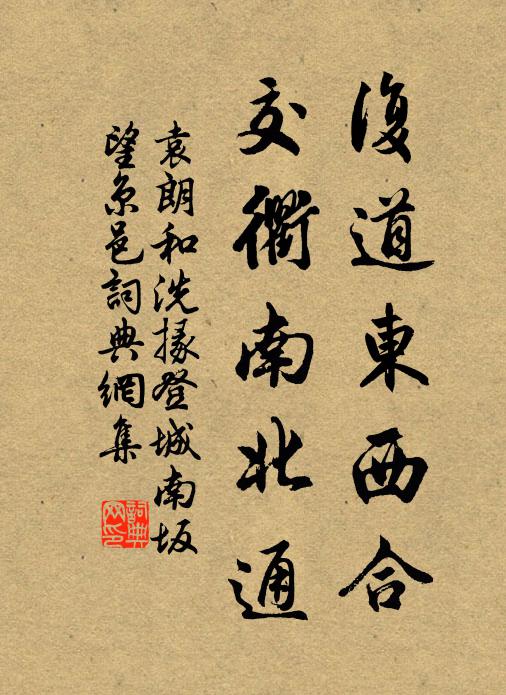 復道東西合
交衢南北通
袁朗和洗掾登城南坂
望京邑詞典網集
詞典
网印